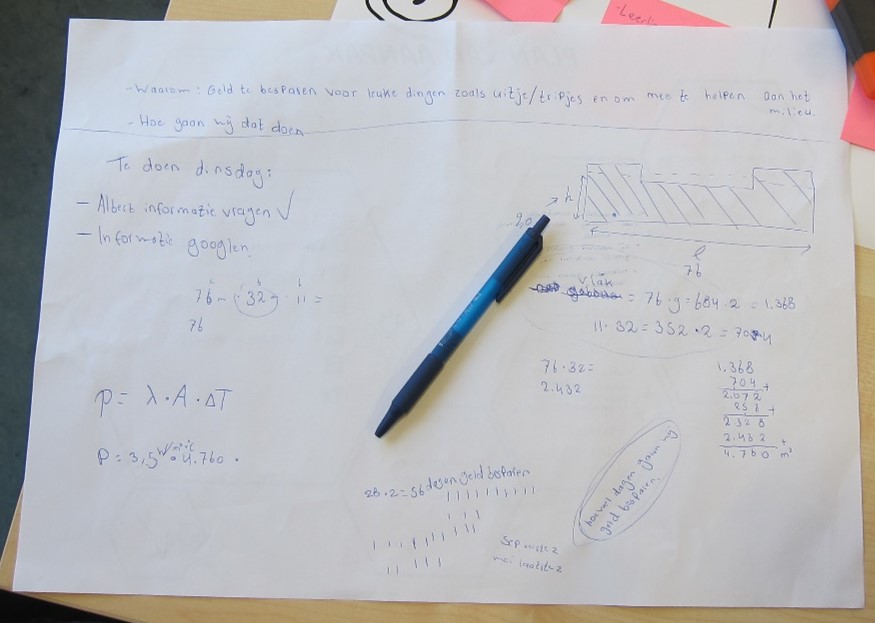 -Leerli
- Waarom : Geld te besparen voor leuke dingen zoals uitje/tripjes en om mee te helpen aan het
milieu.
- Hoe gaan wij dat doen
Te doen dinsdag:
- Albert informatie vragen √
- Informatie googlen.
h
l
76
76 32 · 11 =
76
vlak = 76·9=684·2=1.368
11·32=352·2=704
76·32=
2.432
1.368
704 +
2.072
256 +
2328
2.432 +
4.760 m²
P= λ·A·ΔT
P= 3,5 W/m²·°C · 4.760 ·
28·2=56 dagen geld besparen
hoeveel dagen gaan wij
geld besparen.
Sep
mei laatste 2